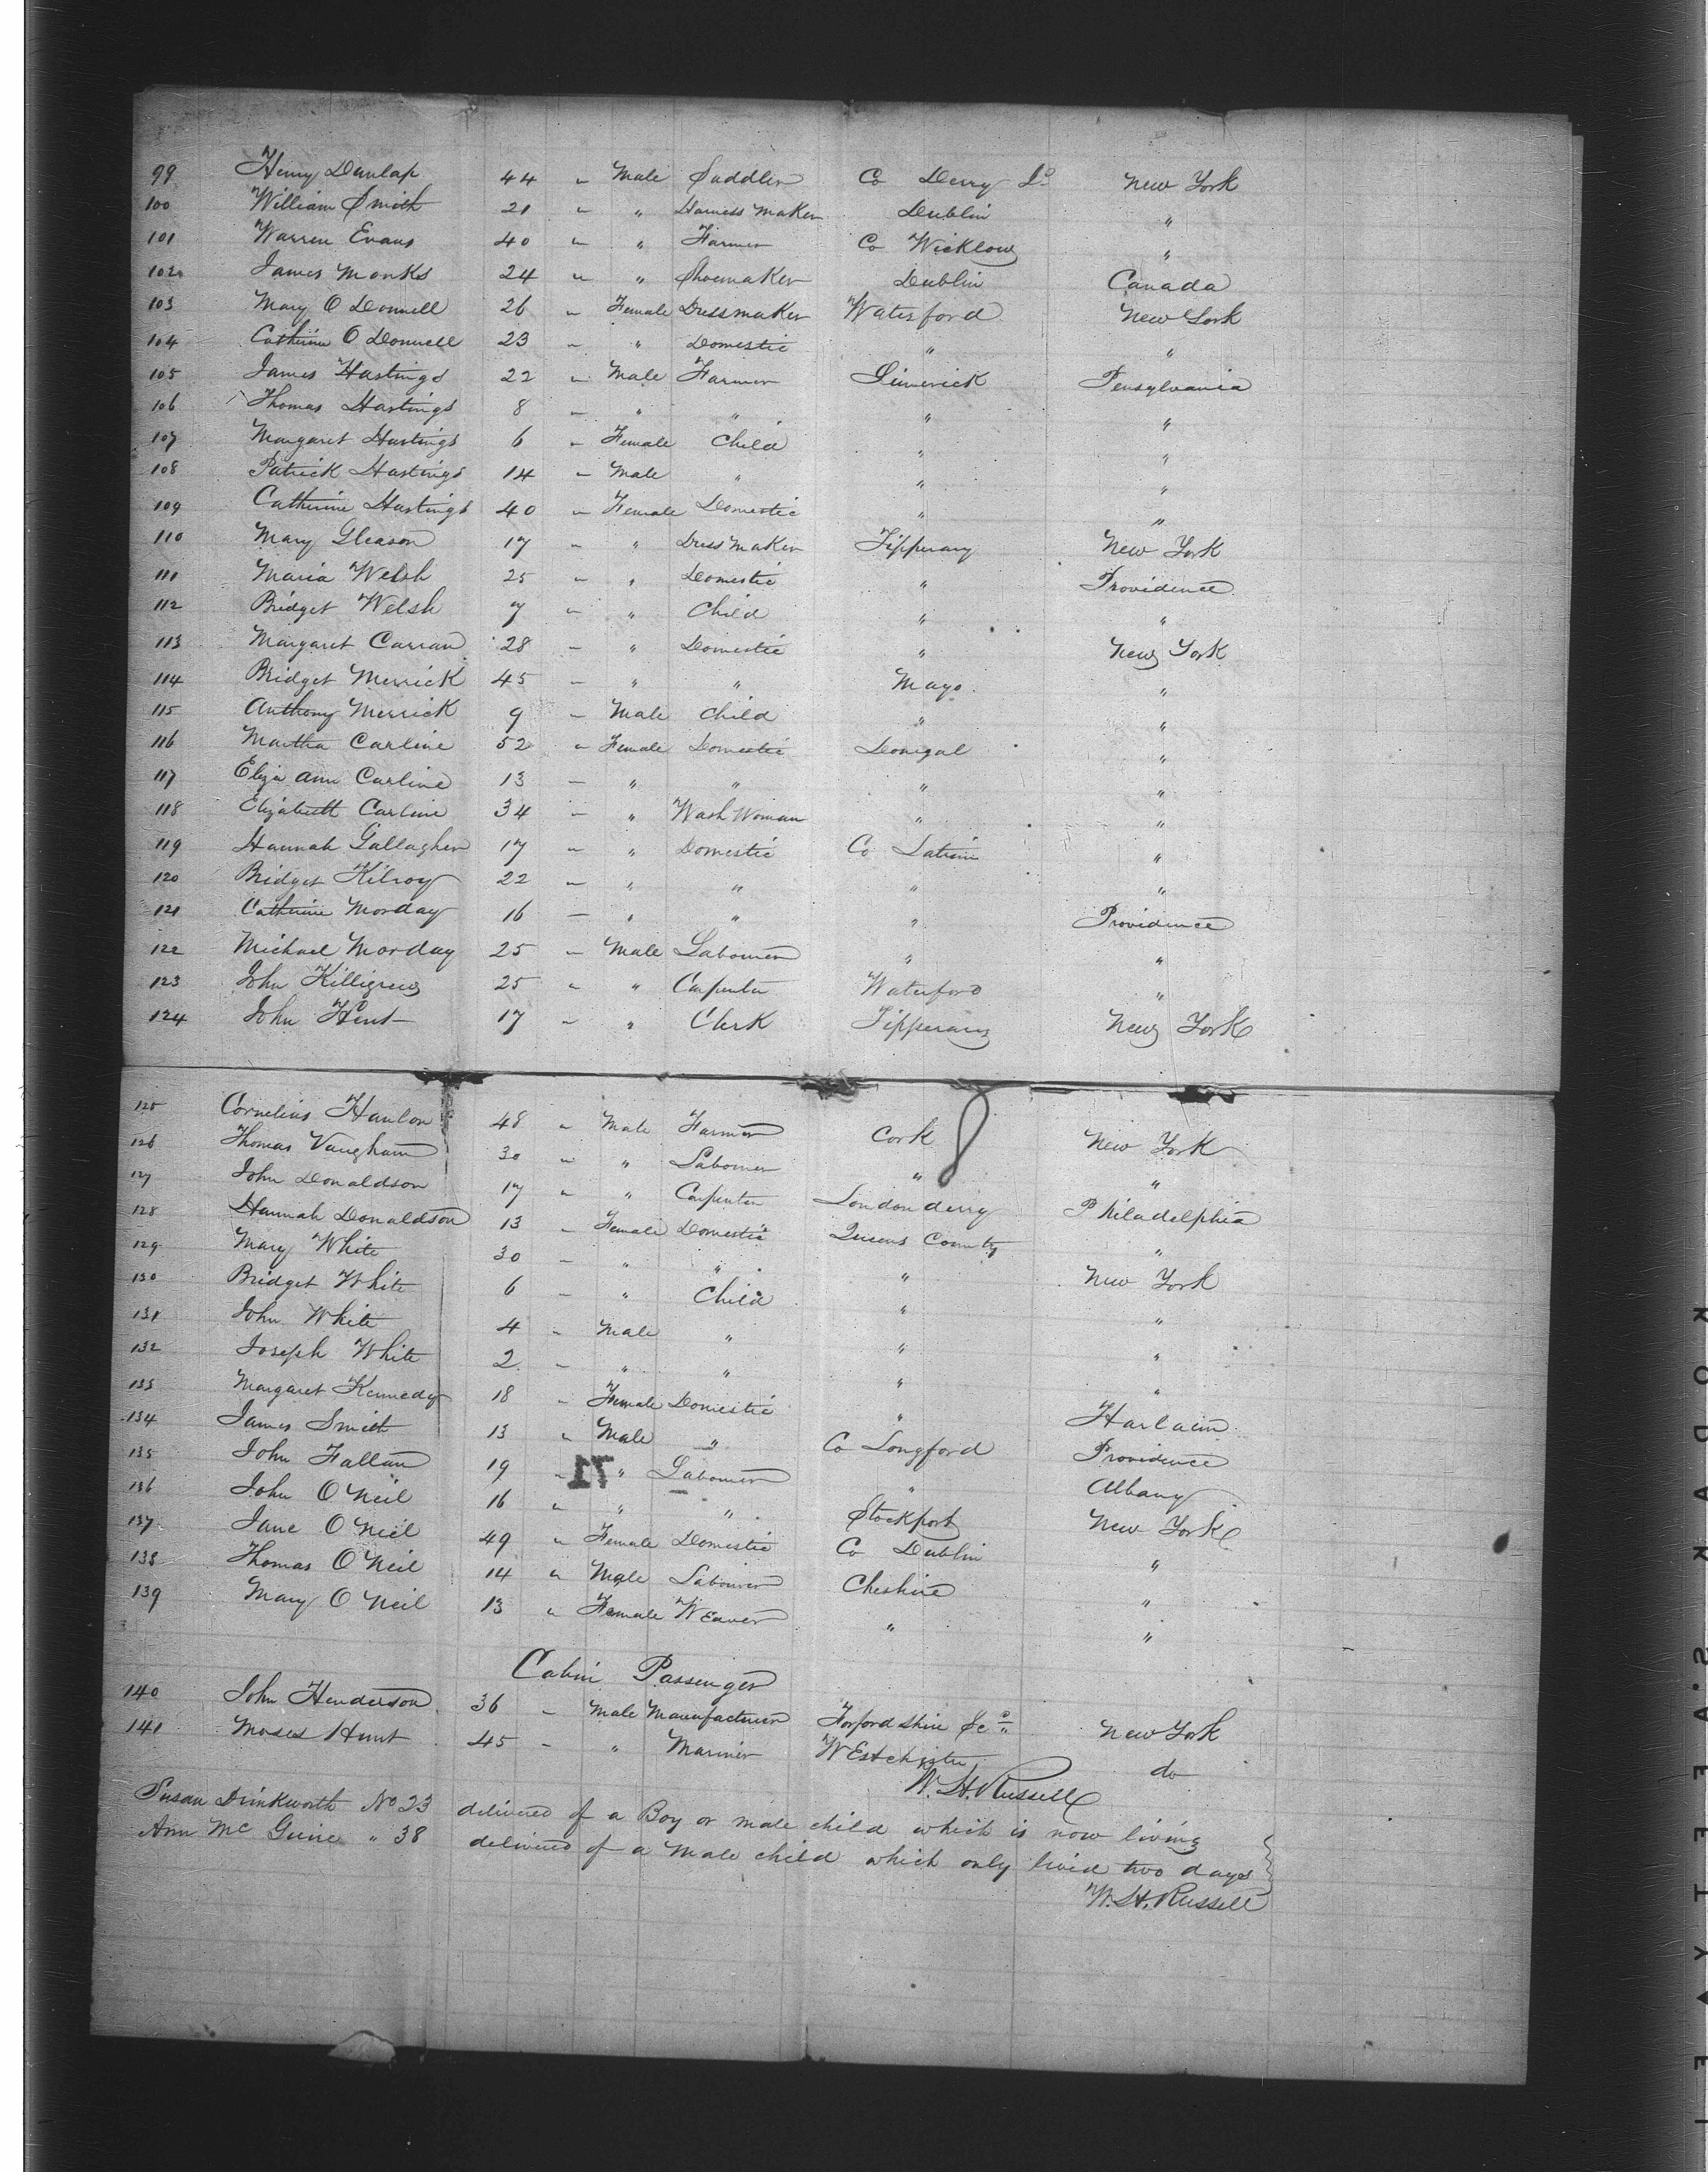 99 Henry Dunlap 44 " Male Saddler Co Derry Id New York
100 William Smith 21 " " Harness Maker Dublin "
101 Warren Evans 40 " " Farmer Co Wicklow "
102 James Monks 24 " " Shoemaker Dublin Canada
103 Mary O Donnell 26 " Female Dressmaker Waterford New York
104 Catherine O Donnell 23 " " Domestic " "
105 James Hastings 22 " Male Farmer Limerick Pensylvania
106 Thomas Hastings 8 " " " " "
107 Margaret Hastings 6 " Female Child " "
108 Patrick Hastings 14 " Male " " "
109 Catherine Hastings 40 " Female Domestic " "
110 Mary Gleason 17 " " Dress Maker Tipperary New York
111 Maria Welsh 25 " " Domestic " Providence
112 Bridget Welsh 7 " " Child " "
113 Margaret Curran 28 " " Domestic " New York
114 Bridget Merrick 45 " " " Mayo "
115 Anthony Merrick 9 " Male Child " "
116 Martha Carline 52 " Female Domestic Donegal "
117 Eliza Ann Carline 13 " " " " "
118 Elizabeth Carline 34 " " Wash Woman " "
119 Hannah Gallagher 17 " " Domestic Co Latrim "
120 Bridget Kilroy 22 " " " " "
121 Catherine Morday 16 " " " " Providence
122 Michael Morday 25 " Male Labourer " "
123 John Killigrew 25 " " Carpenter Waterford "
124 John Hunt 17 " " Clerk Tipperary New York
125 Cornelius Hanlon 48 " Male Farmer Cork New York
126 Thomas Vaugham 30 " " Labourer " "
127 John Donaldson 17 " " Carpenter Londonderry Philadelphia
128 Hannah Donaldson 13 " Female Domestic Queens County "
129 Mary White 30 " " " " New York
130 Bridget White 6 " " Child " "
131 John White 4 " Male " " "
132 Joseph White 2 " " " " "
133 Margaret Kennedy 18 " Female Domestic " Harlaim
134 James Smith 13 " Male " Co Longford Providence
135 John Fallan 19 " " Labourer " Albany
71
136 John O Neil 16 " " " Stockport New York
137 Jane O Neil 49 " Female Domestic Co Dublin "
138 Thomas O Neil 14 " Male Labourer Cheshire "
139 Mary O Neil 13 " Female Weaver " "
Cabin Passenger
140 John Henderson 36 " Male Manufacturer Forfordshire Sc New York
141 Moses Hunt 45 " " Mariner Westchester do
W. H. Russell
Susan Drinkworth No 23 delivered of a Boy or male child which is now living
Ann Mc Guire " 38 delivered of a Male child which only lived two days
W. H. Russell